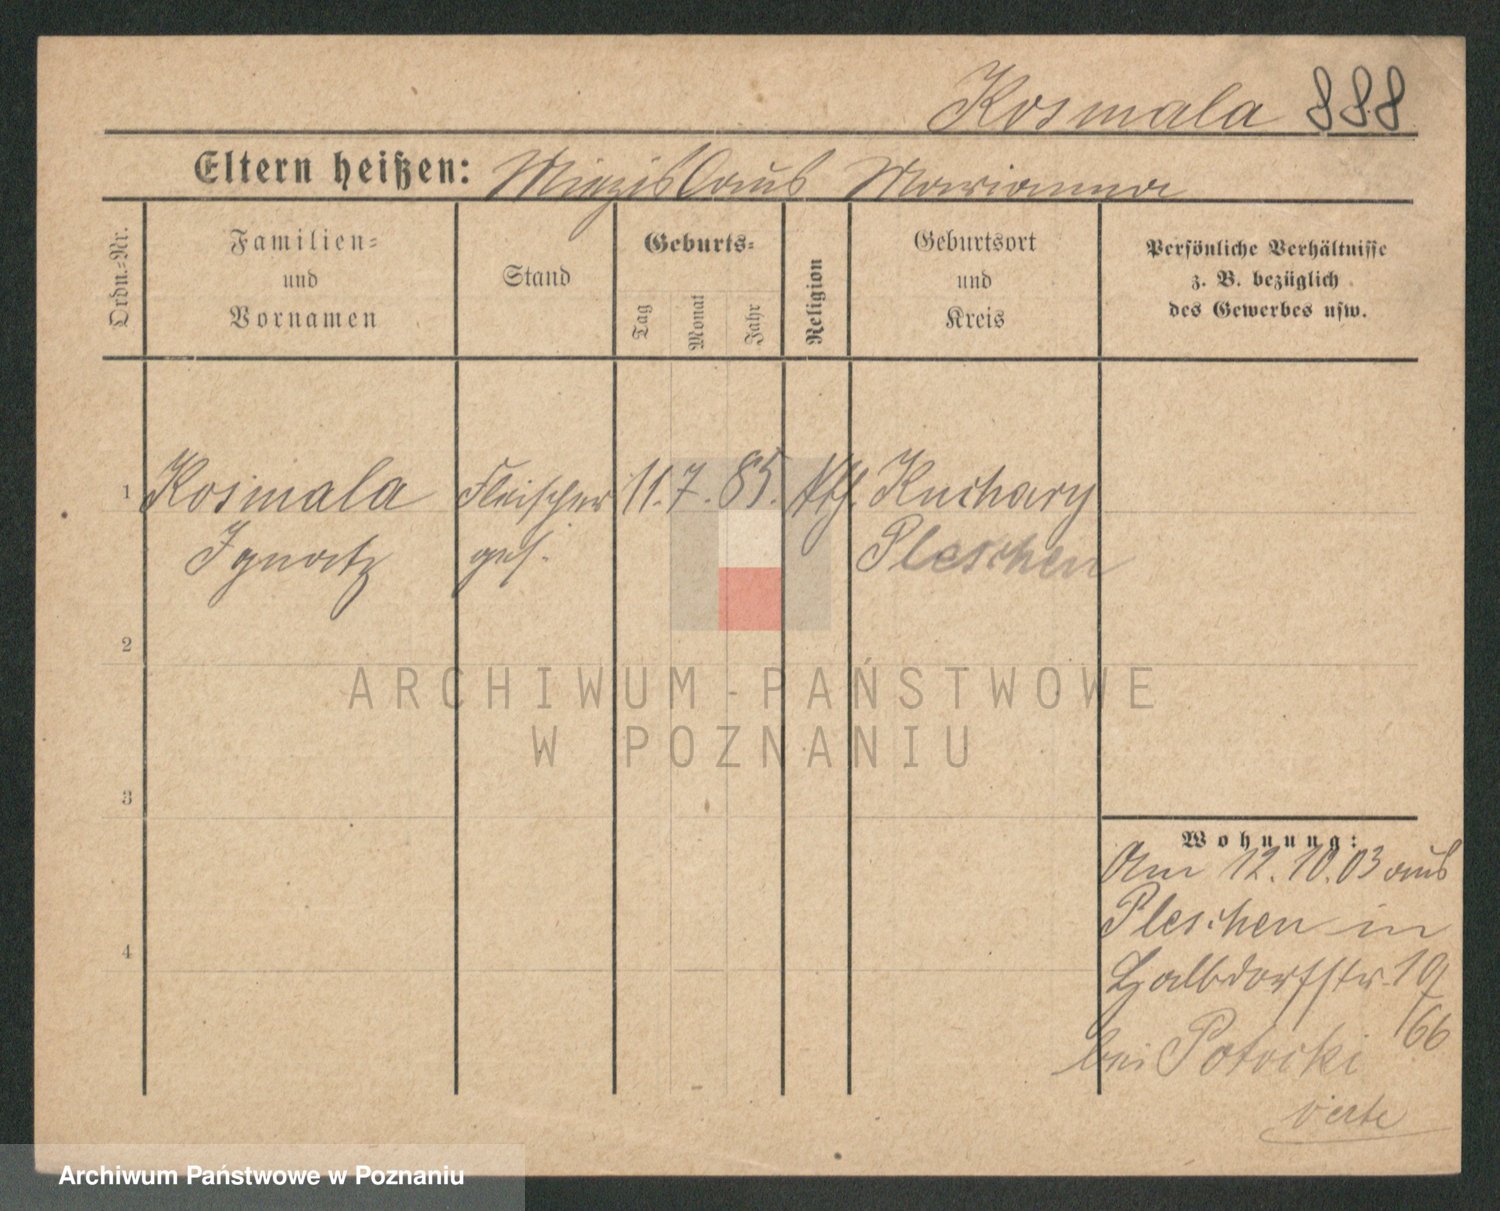 Kosmala 888
Eltern heißen: Miezislaus Marianna
Ordn.-Nr.
Familien-
und
Vornamen
Stand
Geburts-
Tag
Monat
Jahr
Religion
Geburtsort
und
Kreis
Persönliche Verhältnisse
z. B. bezüglich
des Gewerbes usw.
1 Kosmala Fleischer 11. 7. 85. kth. Kuchary
Ignatz ges. Pleschen
2
3
4
Wohnung:
Am 12.10.03 aus
Pleschen in
Halbdorfstr. 19
66
bei Potocki
verte
ARCHIWUM PAŃSTWOWE
W POZNANIU
Archiwum Państwowe w Poznaniu